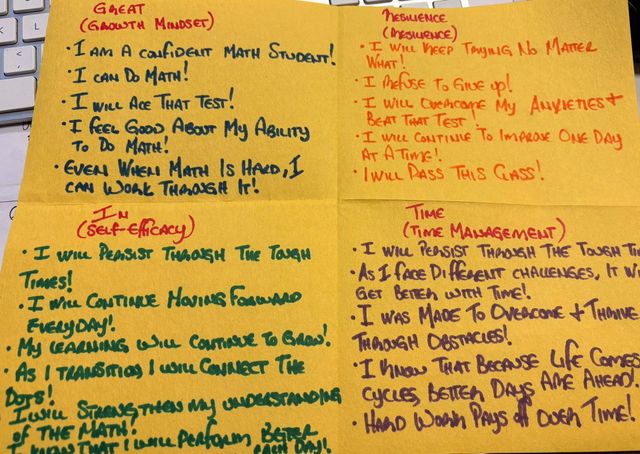 GREAT
(GROWTH MINDSET)
• I AM A CONFIDENT MATH STUDENT!
• I CAN DO MATH!
• I WILL ACE THAT TEST!
• I FEEL GOOD ABOUT MY ABILITY
TO DO MATH!
• EVEN WHEN MATH IS HARD, I
CAN WORK THROUGH IT!
RESILIENCE
(RESILIENCE)
• I WILL KEEP TRYING NO MATTER
WHAT!
• I REFUSE TO GIVE UP!
• I WILL OVERCOME MY ANXIETIES +
BEAT THAT TEST!
• I WILL CONTINUE TO IMPROVE ONE DAY
AT A TIME!
• I WILL PASS THIS CLASS!
IN
(SELF-EFFICACY)
• I WILL PERSIST THROUGH THE TOUGH
TIMES!
• I WILL CONTINUE MOVING FORWARD
EVERYDAY!
• MY LEARNING WILL CONTINUE TO GROW!
• AS I TRANSITION I WILL CONNECT THE
DOTS!
• I WILL STRENGTHEN MY UNDERSTANDING
OF THE MATH!
I KNOW THAT I WILL PERFORM BETTER
EACH DAY!
TIME
(TIME MANAGEMENT)
• I WILL PERSIST THROUGH THE TOUGH TI
• AS I FACE DIFFERENT CHALLENGES, IT WI
GET BETTER WITH TIME!
• I WAS MADE TO OVERCOME + THRIVE
THROUGH OBSTACLES!
• I KNOW THAT BECAUSE LIFE COMES
CYCLES, BETTER DAYS ARE AHEAD!
• HARD WORK PAYS OFF OVER TIME!